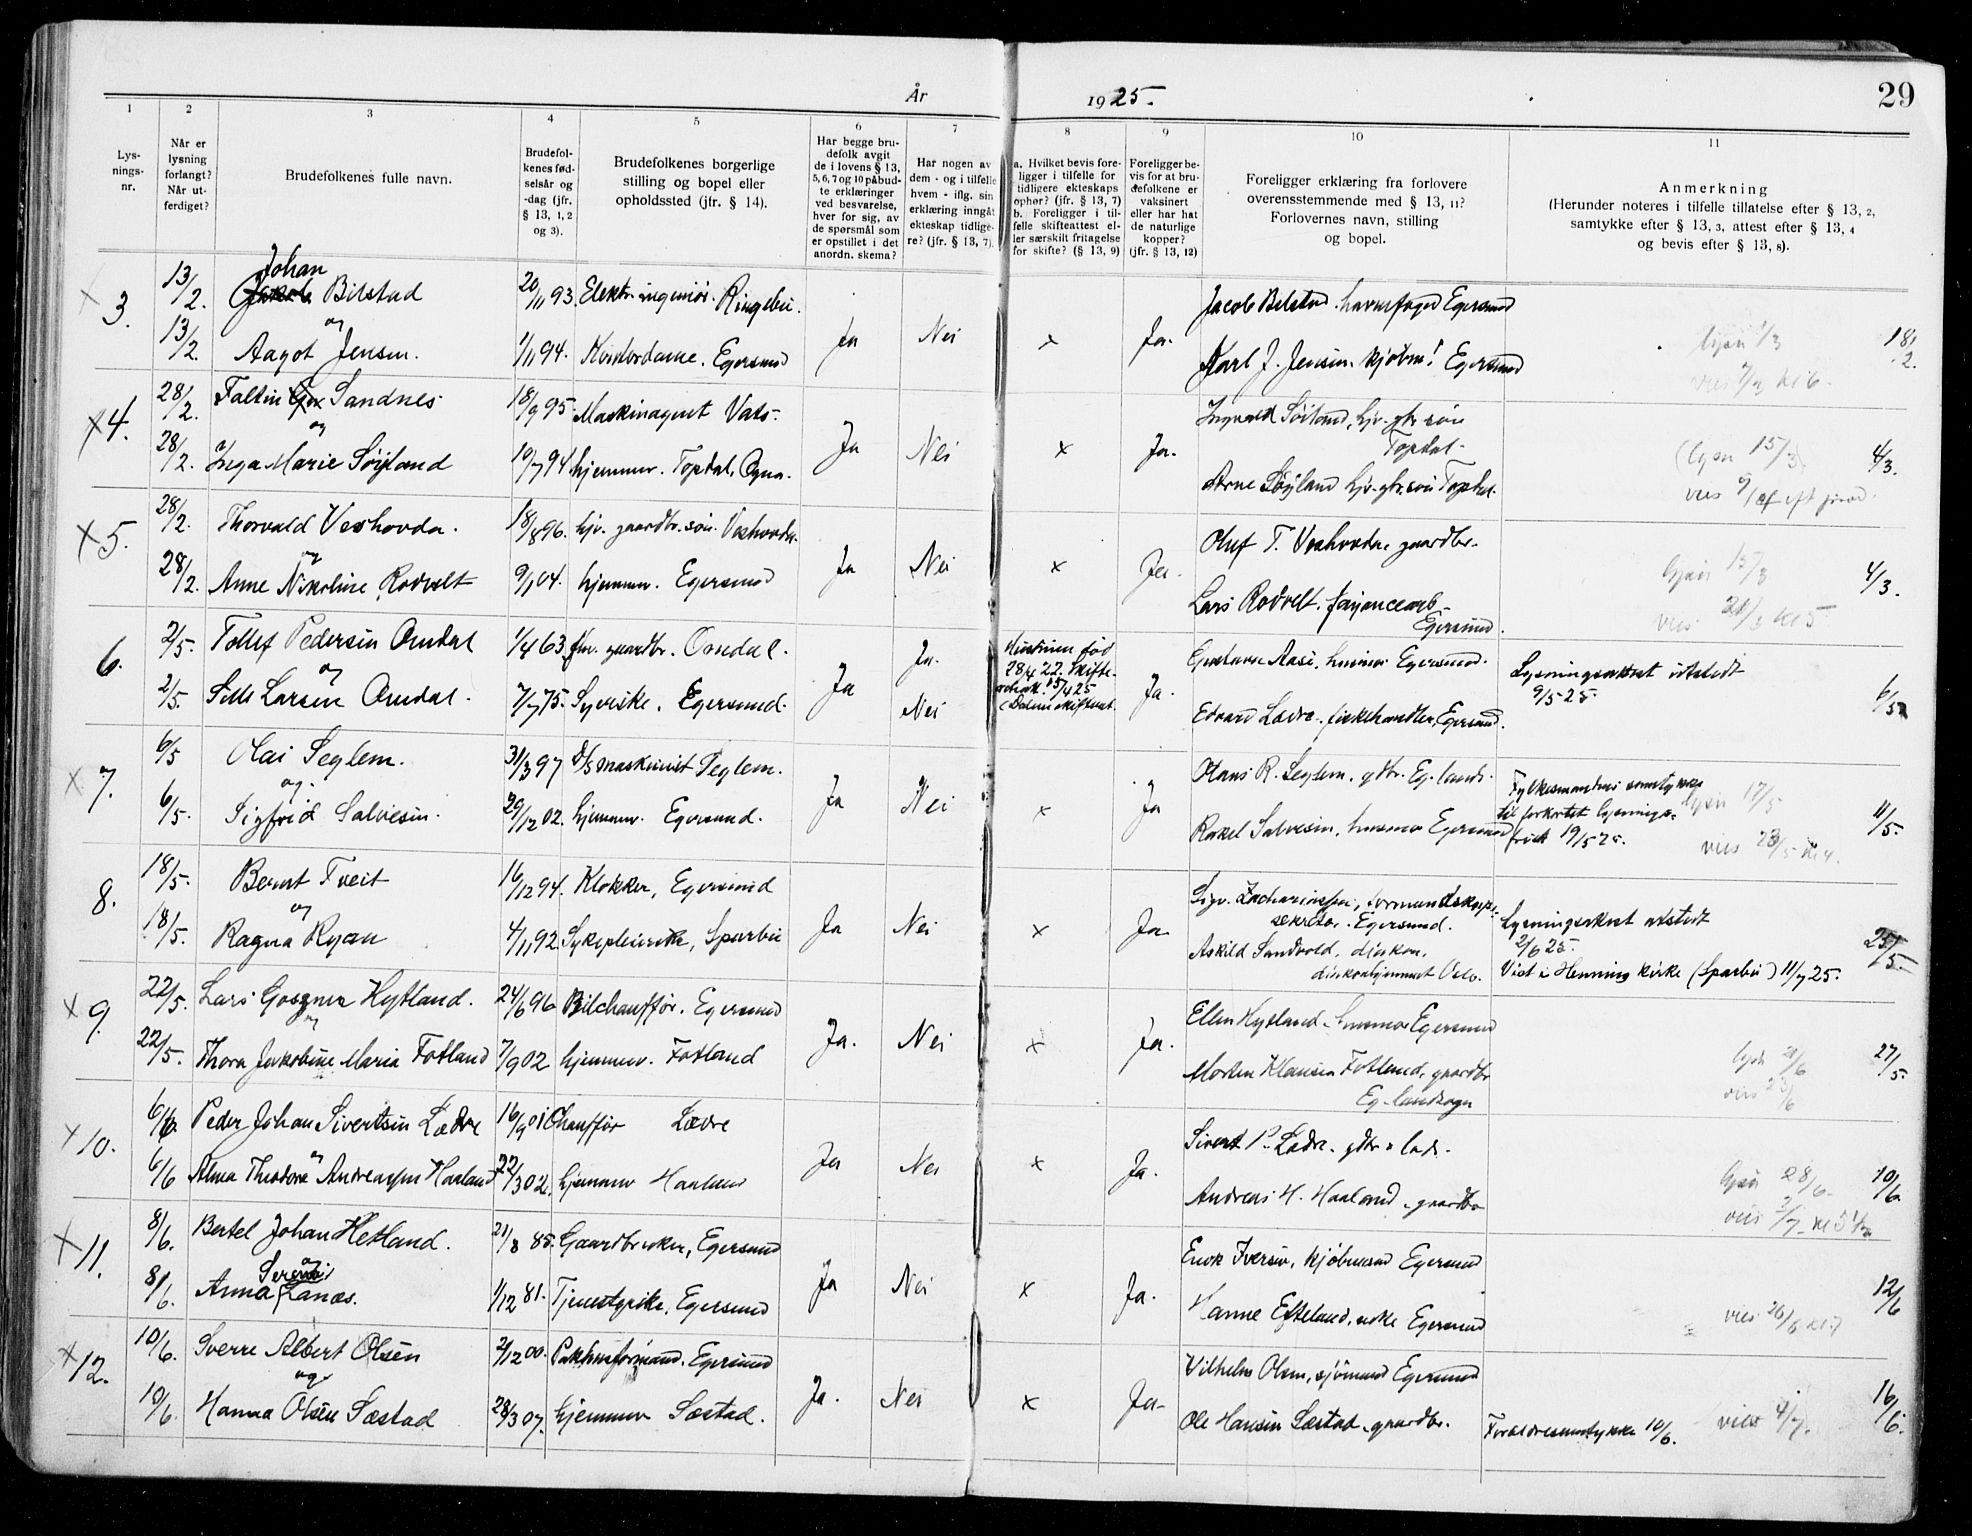 År 1925.
29
1
2
3
4
5
6
7
8
9
10
11
Lys-
nings-
nr.
Når er
lysning
forlangt?
Når ut-
ferdiget?
Brudefolkenes fulle navn.
Brudefol-
kenes fød-
selsår og
-dag (jfr.
§ 13, 1, 2
og 3).
Brudefolkenes borgerlige
stilling og bopel eller
opholdssted (jfr. § 14).
Har begge bru-
defolk avgit
de i lovens § 13,
5, 6, 7 og 10 påbud-
te erklæringer
ved besvarelse,
hver for sig, av
de spørsmål som
er opstillet i det
anordn. skema?
Har nogen av
dem - og i tilfelle
hvem - iflg. sin
erklæring inngåt
ekteskap tidlige-
re? (jfr. § 13, 7).
a. Hvilket bevis fore-
ligger i tilfelle for
tidligere ekteskaps
ophør? (jfr. § 13, 7)
b. Foreligger i til-
felle skifteattest el-
ler særskilt fritagelse
for skifte? (§ 13, 9)
Foreligger be-
vis for at bru-
defolkene er
vaksinert
eller har hat
de naturlige
kopper?
(jfr. § 13, 12)
Foreligger erklæring fra forlovere
overensstemmende med § 13, 11?
Forlovernes navn, stilling
og bopel.
Anmerkning
(Herunder noteres i tilfelle tillatelse efter § 13, 2,
samtykke efter § 13, 3, attest efter § 13, 4
og bevis efter § 13, 8).
Johan
3. 13/2. Bilstad 20/11 93. Elektr. ingeniør. Ringebu. Jacob Bilstad. havnefoged Egersund
og Ja Nei x Ja. lysn 1/3 18/2.
13/2. Aagot Jensen. 1/11 94. Kontordame. Egersund Karl J. Jensen. kjøbm. Egersund
x4. 28/2. Faltin Sandnes 18/9 95. Maskinagent Vats. Ingvald Søiland, hjv. gbr. søn
og Ja Nei x Ja. Topdal. (lysn 15/3) 4/3.
28/2. Inga Marie Søyland 10/7 94 hjemmev. Topdal, Ogna. Arne Søyland hjv. gbr. søn Topdal.
x5. 28/2. Thorvald Veshovda. 18/8 96. hjv. gaardbr. søn. Veshovda. Oluf T. Veshovda gaardbr.
og Ja Nei x Ja. lysn 15/3 4/3.
28/2. Anne Nikoline Rodvelt 9/1 04. hjemmev. Egersund Lars Rodvelt. fayancearb.
Egersund. vies 21/3 kl 5.
6. 2/5. Tollef Pedersen Omdal 1/4 63. fhv. gaardbr. Omdal. Ja. Hustruen død
28/4 22. Skifte-
Gustava Aase, husmor Egersund. Lysningsattest utstedt
og Ja 15/4 25 Ja. 9/5 25. 6/5
2/5. Sille Larsen Omdal. 7/7 75. Syerske. Egersund. Nei (Dalene skifterett. Edvard Lædre, fiskehandler, Egersund.
x 7. 6/5 Olai Seglem. 31/3 97 D/S maskinist Seglem. Hans R. Seglem, gdbr. Eg. lands. Fylkesmandens samtykke
og Ja Nei x Ja til forkortet lysnings- lysn 17/5 11/5.
6/5. Sigfrid Salvesen. 29/12 02. hjemmev. Egersund. Rakel Salvesen, husmor Egersund frist 19/5 25. vies 23/5 kl 4.
8. 18/5. Bernt Tveit 16/12 94. Klokker, Egersund Sigv. Zachariassen, formundskaps-
sekretær. Egersund. Lysningsattest utstedt
og Ja Nei x Ja. 2/6 25. 25/5.
18/5. Ragna Ryan 4/11 92. Sykepleierske, Sparbu Askild Sandvold, diakon,
diakonhjemmet Oslo. Viet i Henning kirke (Sparbu) 11/7 25.
x 9. 22/5. Lars Hytland. 24/6 96 Bilchauffør. Egersund Ellen Hytland. husmor Egersund
og Ja. Nei x Ja. lysn 21/6 27/5.
22/5. Thora Jakobine Maria Fotland 7/9 02 hjemmev. Fotland Morten Klausen Fotland, gaardbr.
Eg. landsogn
x 10. 6/6. Peder Johan Sivertsen Lædre 16/9 01 Chauffør Lædre Sivert P. Lædre. gdbr.
og Ja Nei x Ja. lysn 28/6. 10/6.
6/6 Alma Theodora Andreassen Haaland 22/3 02. hjemmev Haaland Andreas H. Haaland. gaardbr.
x 11. 8/6. Bertel Johan Hetland. 21/8 85. Gaardbruker, Egersund Enok Iversen, kjøbmand Egersund
og Ja Nei x Ja. 12/6
8/6. Anna Lanæs. 1/12 81. Tjenestepike, Egersund Hanne Efteland, enke Egersund vies 26/6
x 12. 10/6. Sverre Albert Olsen 2/12 00. Pakhusformand. Egersund Vilhelm Olsen, sjømand Egersund
og Ja. Nei x Ja. 16/6.
10/6. Hanna Olsen Sæstad 28/3 07. hjemmev Sæstad. Ole Hansen Sæstad. gaardbr. Forældresamtykke 10/6. vies 4/7.